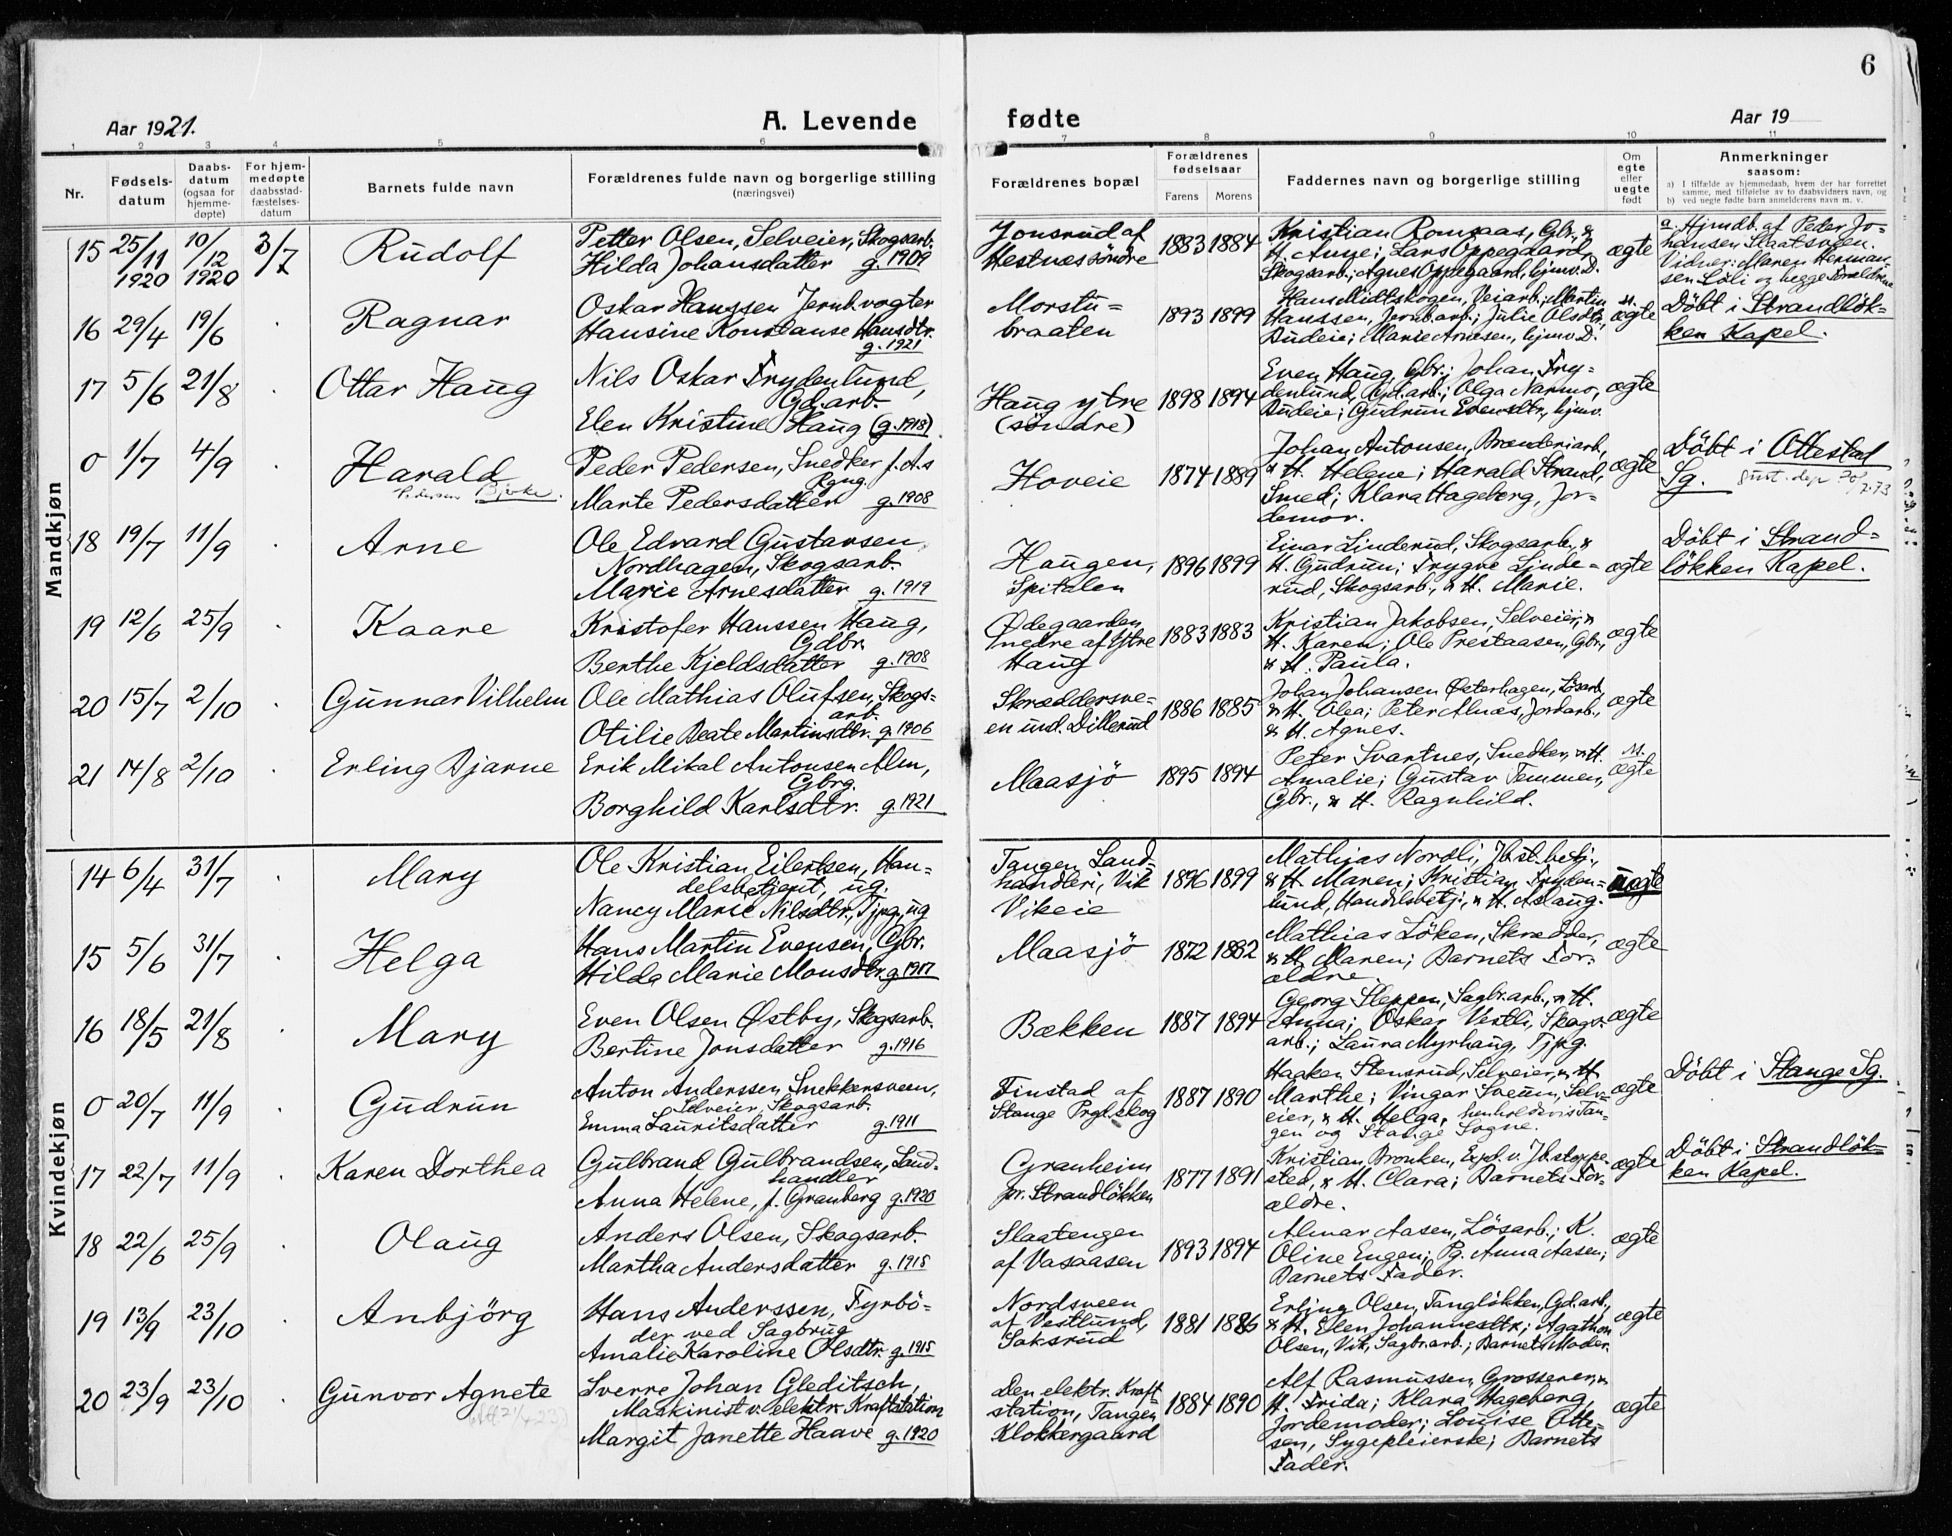 6
Aar 1921.
A. Levende
fødte
Aar 19
1 2 3 4 5 6 7 8 9 10 11
Nr.
Fødsels-
datum
Daabs-
datum
(ogsaa for
hjemme-
døpte)
For hjem-
medøpte
daabsstad-
fæstelses-
datum
Barnets fulde navn
Forældrenes fulde navn og borgerlige stilling
(næringsvei)
Forældrenes bopæl
Forældrenes
fødselsaar
Farens Morens
Faddernes navn og borgerlige stilling
Om
egte
eller
uegte
født
Anmerkninger
saasom:
a) I tilfælde av hjemmedaab, hvem der har forrettet
samme, med tilføielse av to daabsvidners navn, og
b) ved uegte fødte barn anmelderens navn m. v.
Mandkjøn
15 25/11 1920 10/12 1920 3/7 Rudolf
Petter Olsen, Selveier, Skogsarb.
Hilda Johansdatter g. 1909
Jonsrud af
Hestnæs söndre
1883 1884
Kristian Romsaas, Gbr., &
H. Anne; Lars Oppegaard,
Skogsarb.; Agnes Oppegaard, hjmv. D.
ægte
a. Hjmdb. af Peder Jo-
hansen Slaatsveen.
Vidner: Maren Herman-
sen Löli og begge Forældrene
16 29/4 19/6 Ragnar
Oskar Hanssen Jernb.vogter
Hansine Konstanse Hansdtr.
g. 1921
Morstu-
braaten
1893 1899
Hans Midtskogen, Veiarb.; Martin
Hanssen, Jernb.arb.; Julie Olsdtr.,
Budeie; Marie Arnesen, hjmv. D.
ægte
Döbt i Strandlök-
ken Kapel.
17 5/6 21/8 Ottar Haug
Nils Oskar Frydenlund,
Gd.arb.
Elen Kristine Haug (g. 1918)
Haug ytre
(söndre)
1898 1894
Even Haug, Gbr.; Johan Fry-
denlund, Gd.arb.; Olga Narmo,
Budeie; Gudrun Evensdtr., hjmv.
ægte
0 1/7 4/9 Harald
Pedersen Bjerke.
Peder Pedersen, Snedker f. A.s
Rgng.
Marte Pedersdatter g. 1908
Hoveie
1874 1889
Johan Antonsen, Brænderiarb.,
& H. Helene; Harald Strand,
Smed; Klara Hageberg, Jor-
demor.
ægte
Döbt i Ottestad
Sg.
18 19/7 11/9 Arne
Ole Edvard Gustavsen
Nordhagen, Skogsarb.
Marie Arnesdatter g. 1919
Haugen,
Spitalen
1896 1899
Einar Linderud, Skogsarb., &
H. Gudrun; Trygve Linde-
rud, Skogsarb., & H. Marie.
ægte
Döbt i Strand-
lökken Kapel.
19 12/6 25/9 Kaare
Kristofer Hanssen Haug,
Gdbr.
Berthe Kjeldsdatter g. 1908
Ødegaarden
nedre af Ytre
Haug
1883 1883
Kristian Jakobsen, Selveier, &
H. Karen; Ole Prestaasen, Gbr.,
& H. Paula.
ægte
20 15/7 2/10 Gunnar Vilhelm
Ole Mathias Olufsen, Skogs-
arb.
Otilie Beate Martinsdtr. g. 1906
Skræddersve-
en und. Dillerud
1886 1885
Johan Johansen Østerhagen, Løsarb.,
& H. Olea; Peter Alnæs, Jordarb.,
& H. Agnes.
ægte
21 14/8 2/10 Erling Bjarne
Erik Mikal Antonsen Alm,
Gbrg.
Borghild Karlsdtr. g. 1921
Maasjö
1895 1894
Peter Svartnes, Snedker, & H.
Amalie; Gustav Temmen,
Gbr., & H. Ragnhild.
ægte
Kvindekjøn
14 6/4 31/7 Mary
Ole Kristian Eilertsen, Han-
delsbetjent, ug.
Nancy Marie Nilsdtr., Tjpg., ug
Tangen Land-
handleri, Vik
Vikeie
1896 1899
Mathias Nordli, Jb.st.betj.,
& H. Maren; Kristian Fryden-
lund, Handelsbetj., & H. Aslaug.
uægte
15 5/6 31/7 Helga
Hans Martin Evensen, Gbr.
Hilda Marie Monsdtr. g. 1917
Maasjö
1872 1882
Mathias Löken, Skrædder,
& H. Maren; Barnets For-
ældre.
ægte
16 18/5 21/8 Mary
Even Olsen Østby, Skogsarb.
Bertine Jonsdatter g. 1916
Bækken
1887 1894
Georg Sleppen, Sagbr.arb., & H.
Anna; Oskar Vestli, Skogs-
arb.; Laura Myrhaug, Tjpg.
ægte
0 20/7 11/9 Gudrun
Anton Anderssen Snekkersveen,
Selveier, Skogsarb.
Emma Lauritsdatter g. 1911
Finstad af
Stange Prgl. skog
1887 1890
Haaken Stensrud, Selveier, & H
Marthe; Vingar Sveum, Selv-
eier, & H. Helga, henholdsvis Tan-
gen og Stange Sogne.
ægte
Döbt i Stange Sg.
17 22/7 11/9 Karen Dorthea
Gulbrand Gulbrandsen, Land-
handler
Anna Helene, f. Granberg g. 1920
Granheim
pr. Strandlökken
1877 1891
Kristian Bronken, Exp. v. Jb.stoppe-
sted, & H. Clara; Barnets For-
ældre.
ægte
Döbt i Strandlök-
ken Kapel.
18 22/6 25/9 Olaug
Anders Olsen, Skogsarb.
Martha Andersdatter g. 1918
Slaatengen
af Vasaasen
1893 1894
Almar Aasen, Løsarb.; K.
Oline Engen; Pg. Anna Aasen;
Barnets Fader.
ægte
19 13/9 23/10 Anbjörg
Hans Anderssen, Fyrbö-
der ved Sagbrug
Amalie Karoline Olsdtr. g. 1915
Nordsveen
af Vestlund,
Saksrud
1881 1886
Erling Olsen, Tangløkken, Gd.arb.,
& H. Elen Johannesdtr.; Agathon
Olsen, Vik, Sagbr.arb.; Barnets Moder.
ægte
20 23/9 23/10 Gunvor Agnete
Sverre Johan Gleditsch,
Maskinist v. elektr. Kraftstation
Margit Janette Haave g. 1920
Den elektr. Kraft-
station, Tangen
Klokkergaard
1884 1890
Alf Rasmussen, Grosserer, &
H. Frida; Klara Hageberg,
Jordemoder; Louise Otte-
sen, Sygepleierske; Barnets
Fader.
ægte